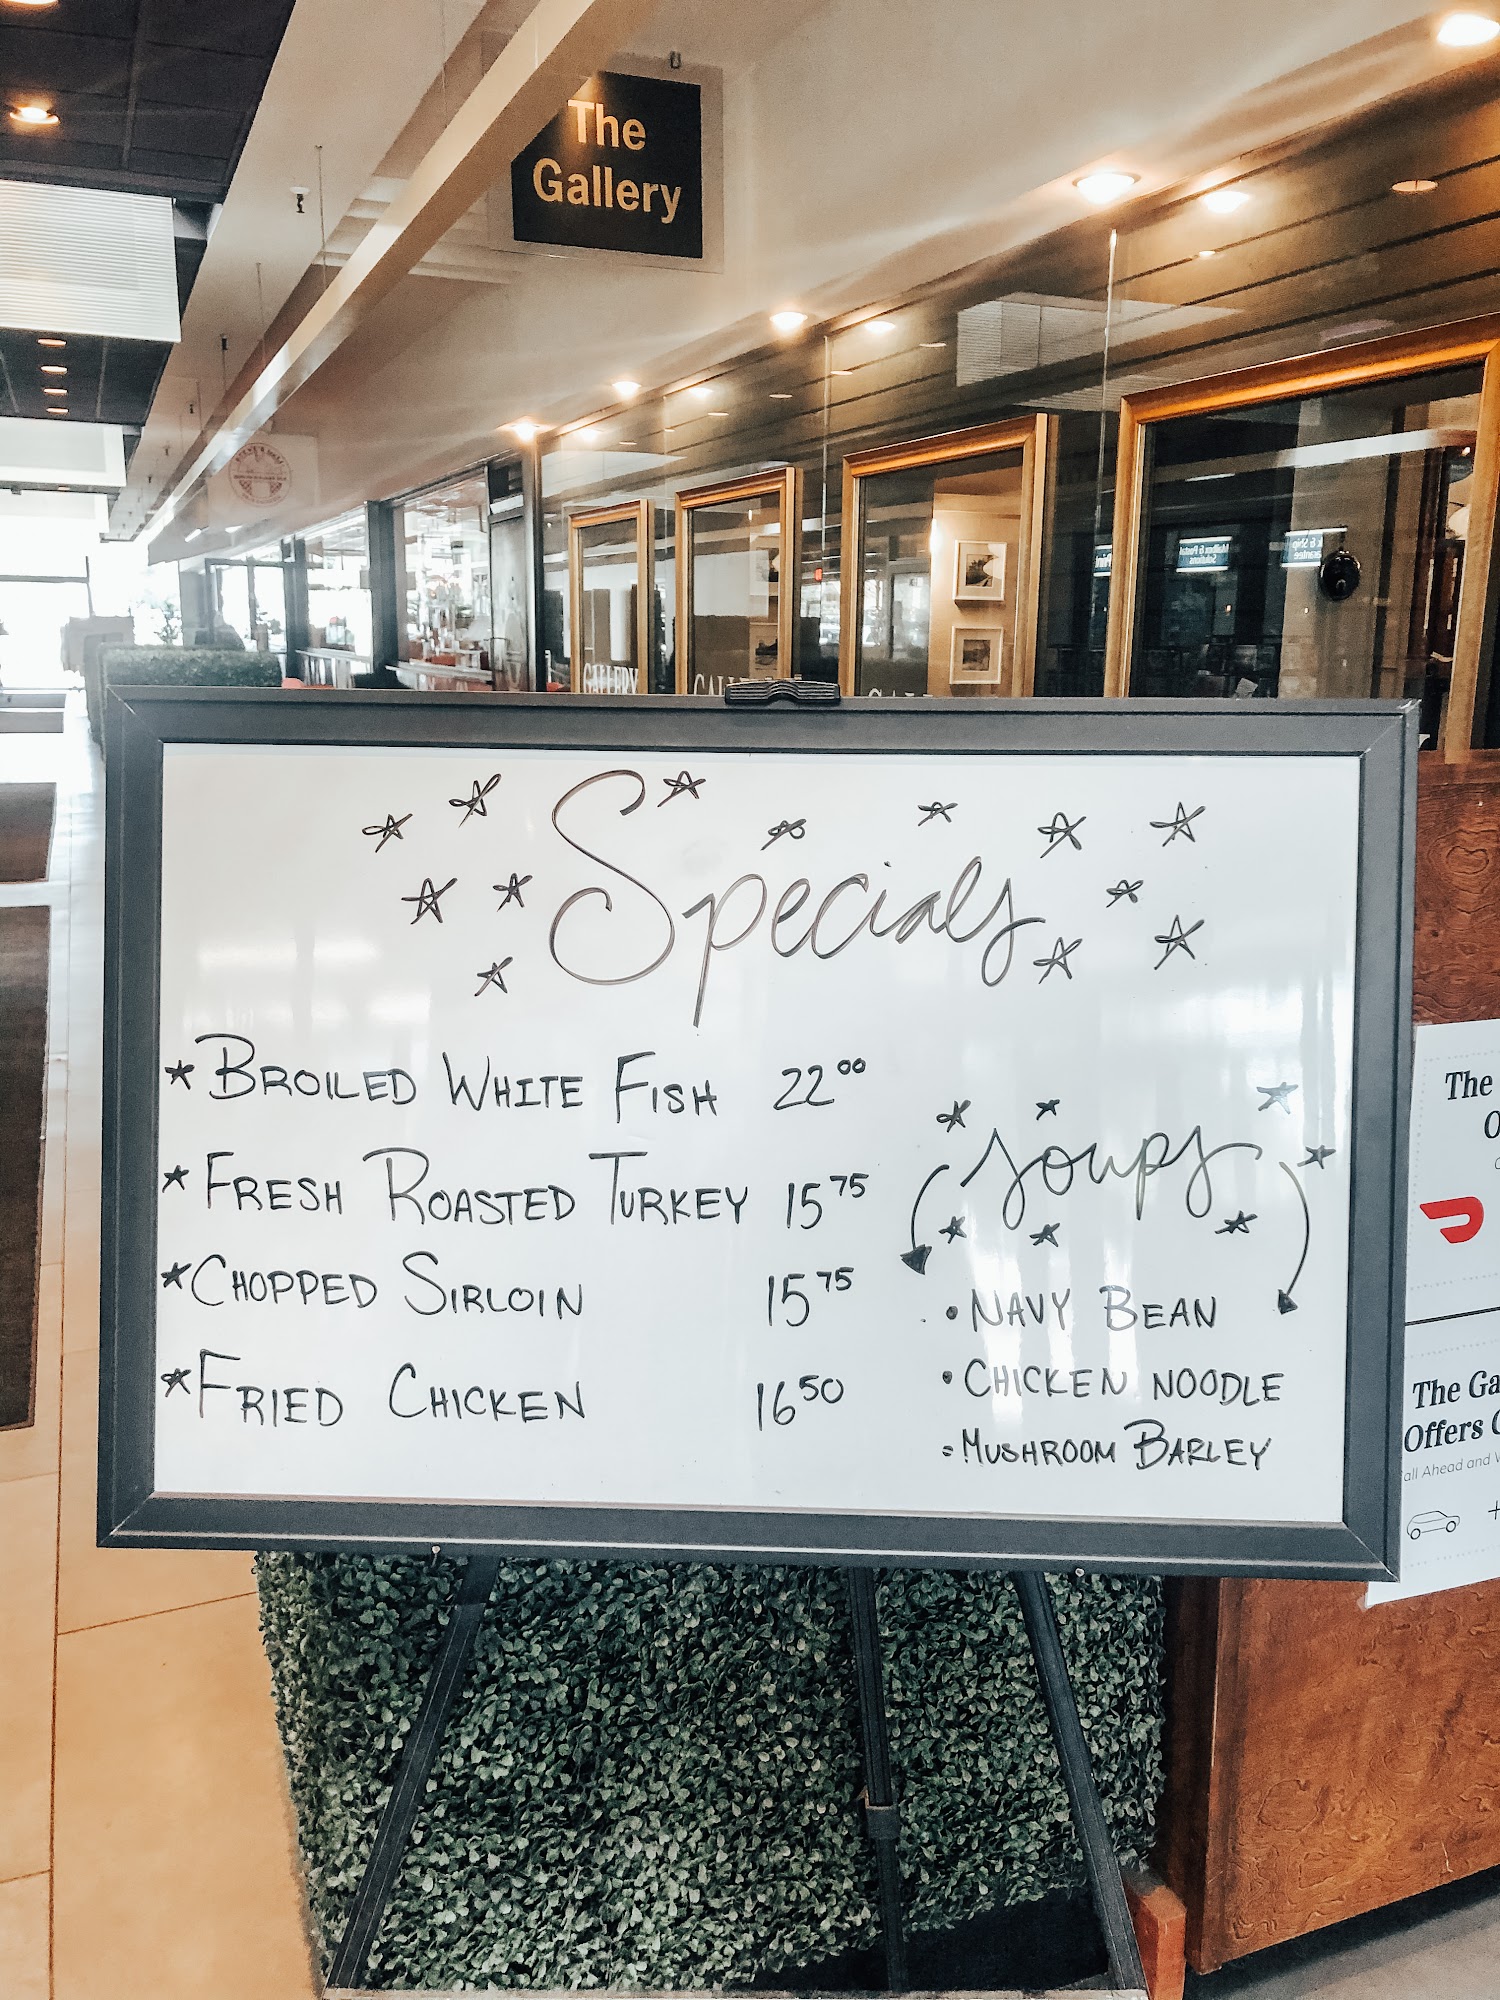 The
Gallery
GALLERY
Specials
★ BROILED WHITE FISH 22⁰⁰
★ FRESH ROASTED TURKEY 15⁷⁵
★ CHOPPED SIRLOIN 15⁷⁵
★ FRIED CHICKEN 16⁵⁰
Soups
• NAVY BEAN
• CHICKEN NOODLE
• MUSHROOM BARLEY
The
The Ga
Offers
all Ahead and